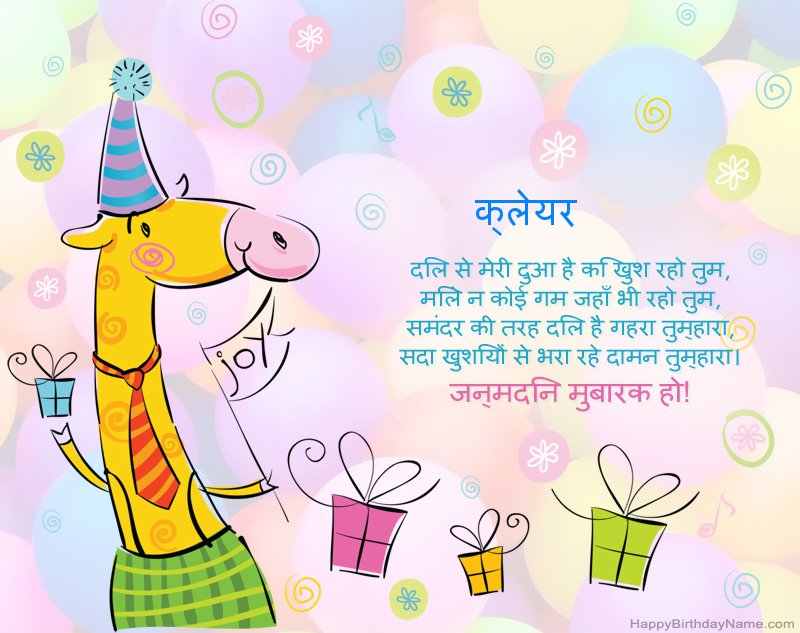 क्लेयर
दिल से मेरी दुआ है कि खुश रहो तुम,
मिले न कोई गम जहाँ भी रहो तुम,
समंदर की तरह दिल है गहरा तुम्हारा,
सदा खुशियों से भरा रहे दामन तुम्हारा।
जन्मदिन मुबारक हो!
joy
HappyBirthdayName.com